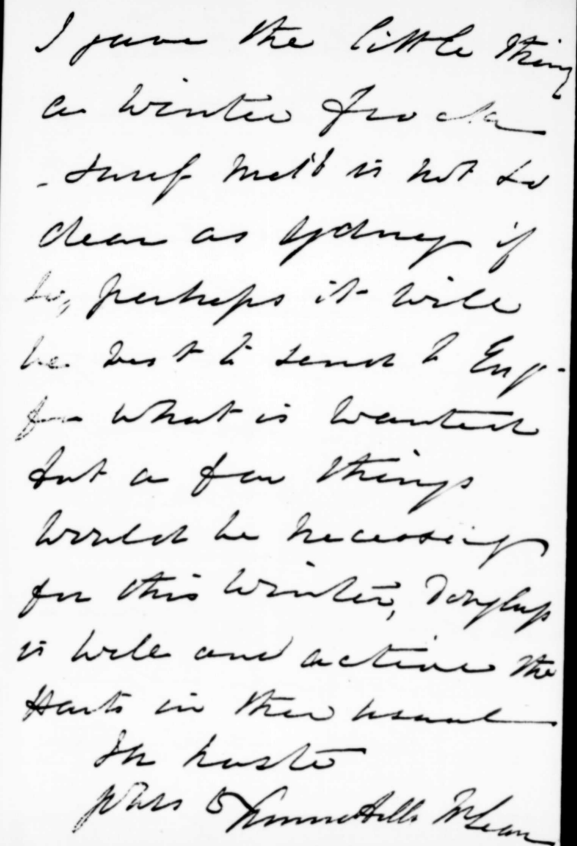 I gave the little thing
a winter frock
- surely Melb is not so
dear as Sydney if
so, perhaps it will
be best to send to Eng-
for what is wanted
but a few things
would be necessary
for this winter, Douglas
is well and active the
Harts in their usual
In haste
yours
McLean